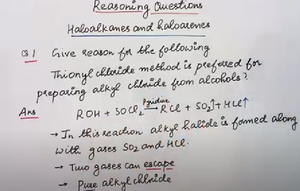 Reasoning Questions
Haloalkanes and haloarenes
Q.1 Give reason for the following
Thionyl chloride method is preferred for
preparing alkyl chloride from alcohols?
Ans
ROH + SOCl₂ Pyridine → RCl + SO₂↑ + HCl↑
→ In this reaction alkyl halide is formed along
with gases SO₂ and HCl.
→ Two gases can escape
→ Pure alkyl chloride